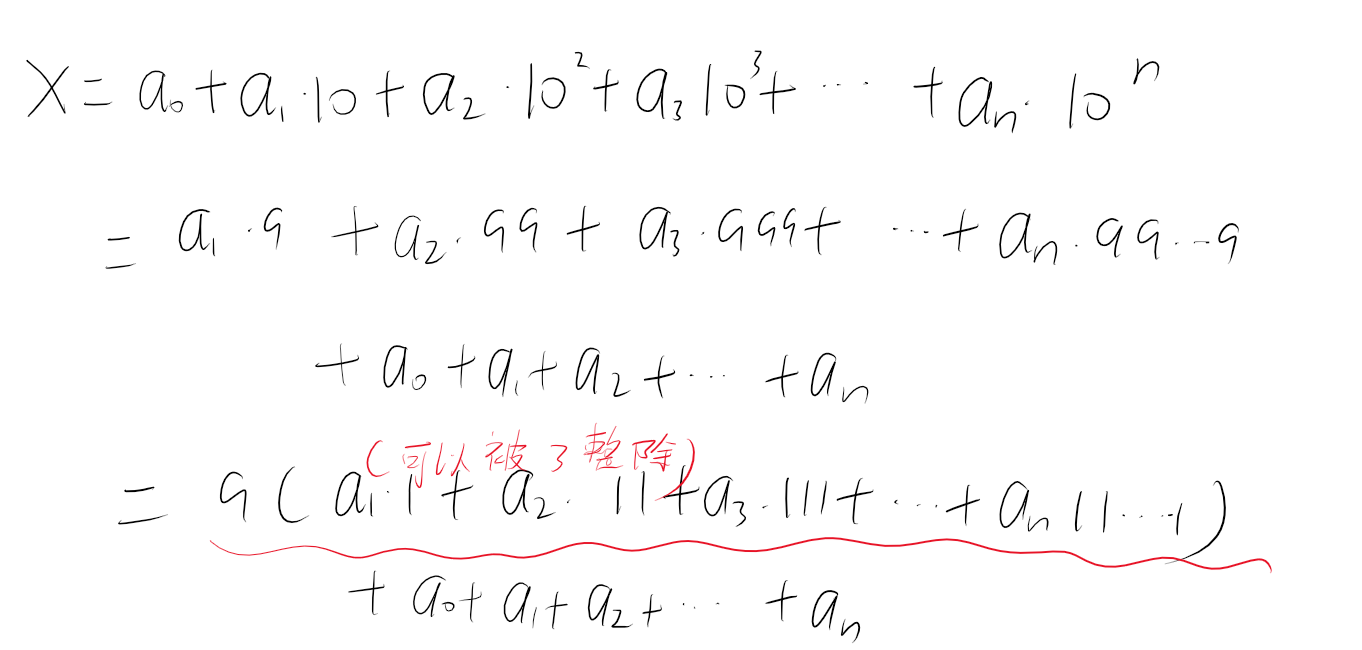 X = a₀ + a₁·10 + a₂·10² + a₃10³ + ··· + aₙ·10ⁿ
= a₁·9 + a₂·99 + a₃·999 + ··· + aₙ·99···9
+ a₀ + a₁ + a₂ + ··· + aₙ
(可以被3整除)
= 9(a₁·1 + a₂·11 + a₃·111 + ··· + aₙ11···1)
+ a₀ + a₁ + a₂ + ··· + aₙ